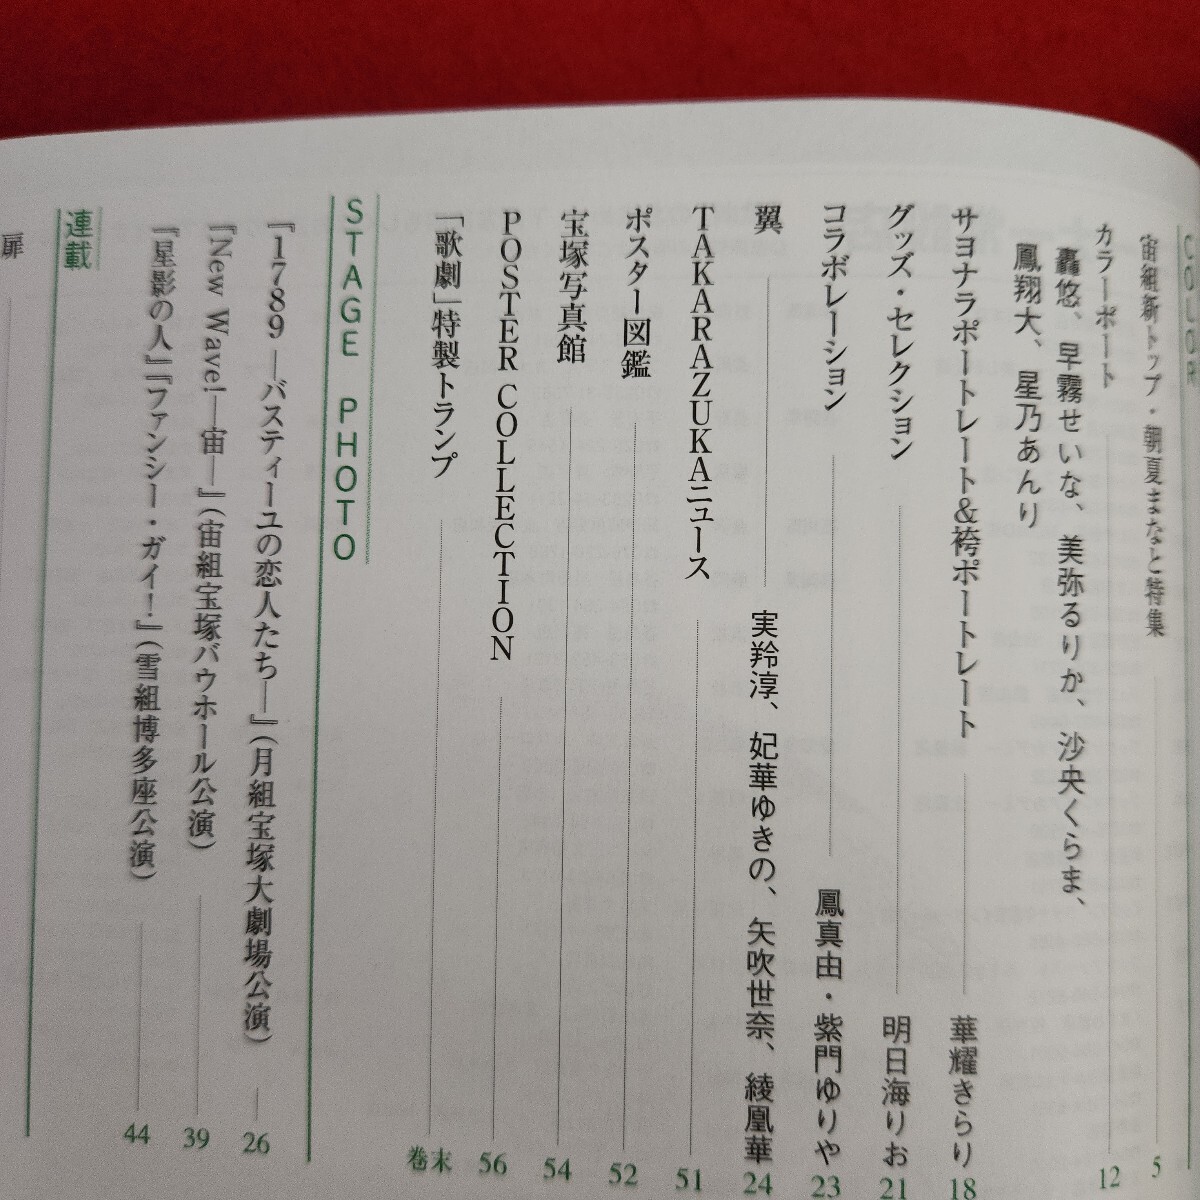 COLOR
宙組新トップ・朝夏まなと特集 5
カラーポート 12
轟悠、早霧せいな、美弥るりか、沙央くらま、
鳳翔大、星乃あんり
サヨナラポートレート&袴ポートレート 華耀きらり 18
グッズ・セレクション 明日海りお 21
コラボレーション 鳳真由・紫門ゆりや 23
翼 実羚淳、妃華ゆきの、矢吹世奈、綾凰華 24
TAKARAZUKAニュース 51
ポスター図鑑 52
宝塚写真館 54
POSTER COLLECTION 56
「歌劇」特製トランプ 巻末
STAGE PHOTO
『1789 ―バスティーユの恋人たち―』(月組宝塚大劇場公演) 26
『New Wave! ―宙―』(宙組宝塚バウホール公演) 39
『星影の人』『ファンシー・ガイ!』(雪組博多座公演) 44
連載
扉